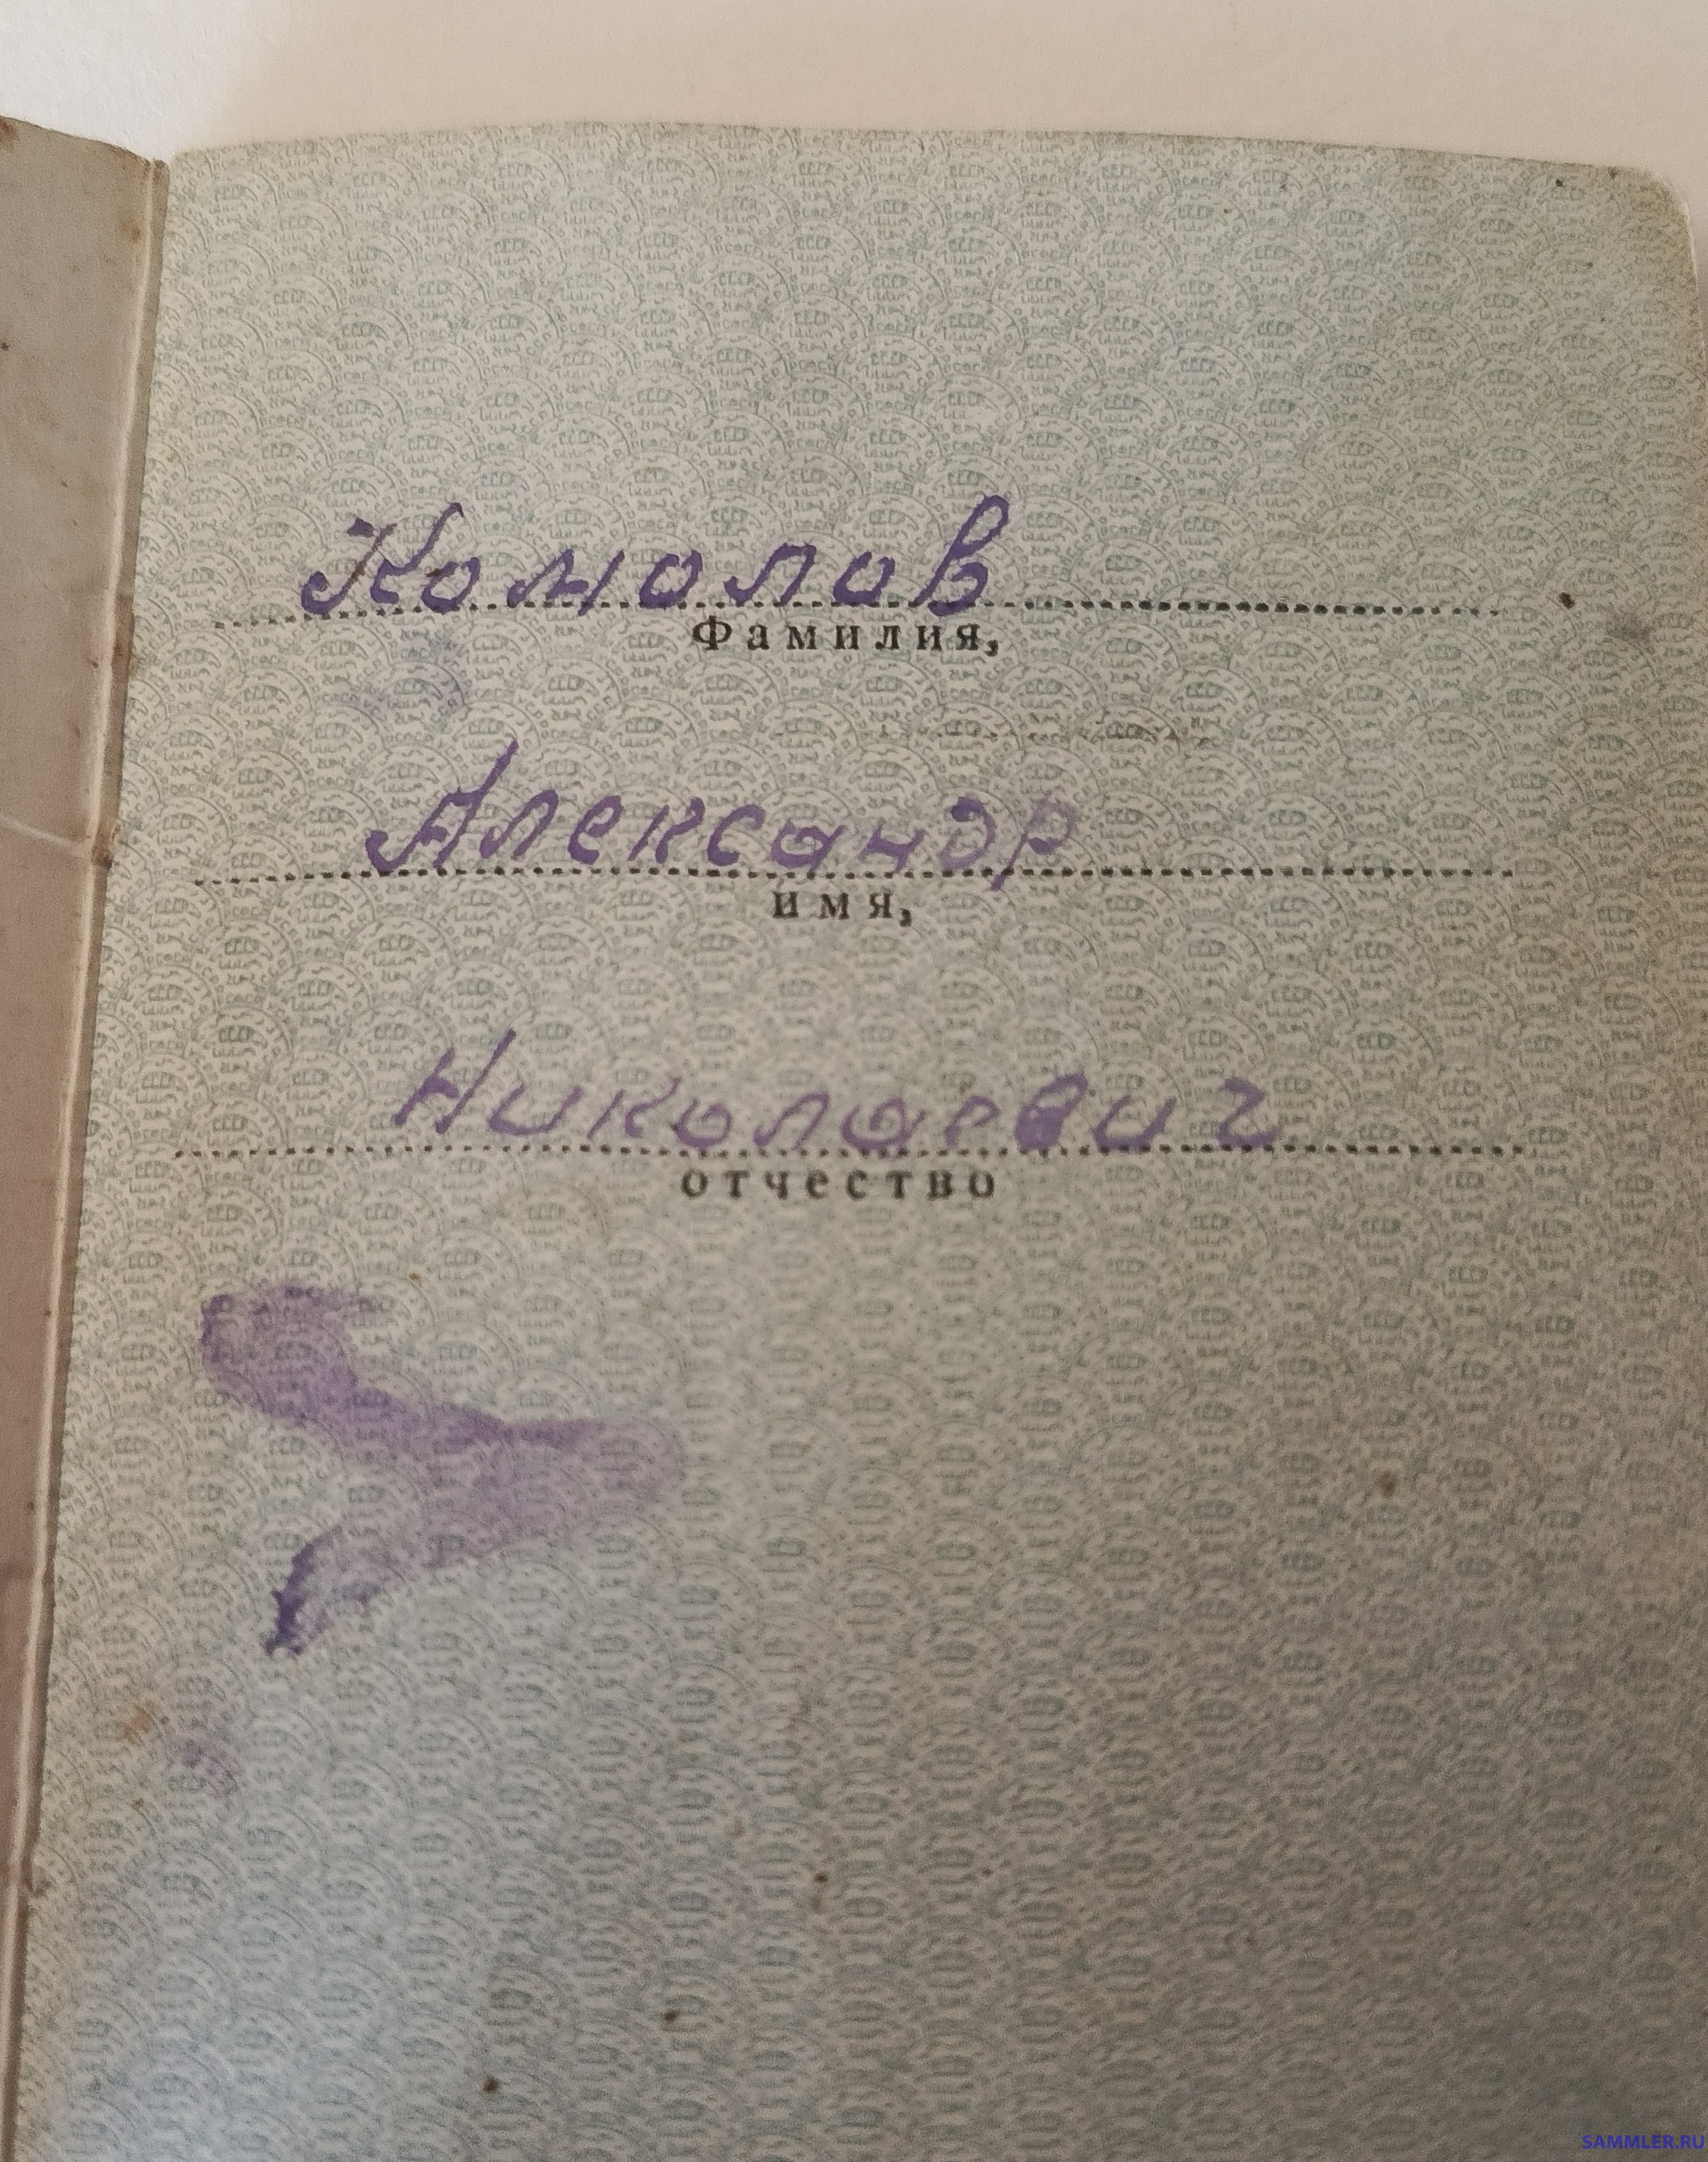 Комолов
Фамилия,
Александр
имя,
Николаевич
отчество
SAMMLER.RU